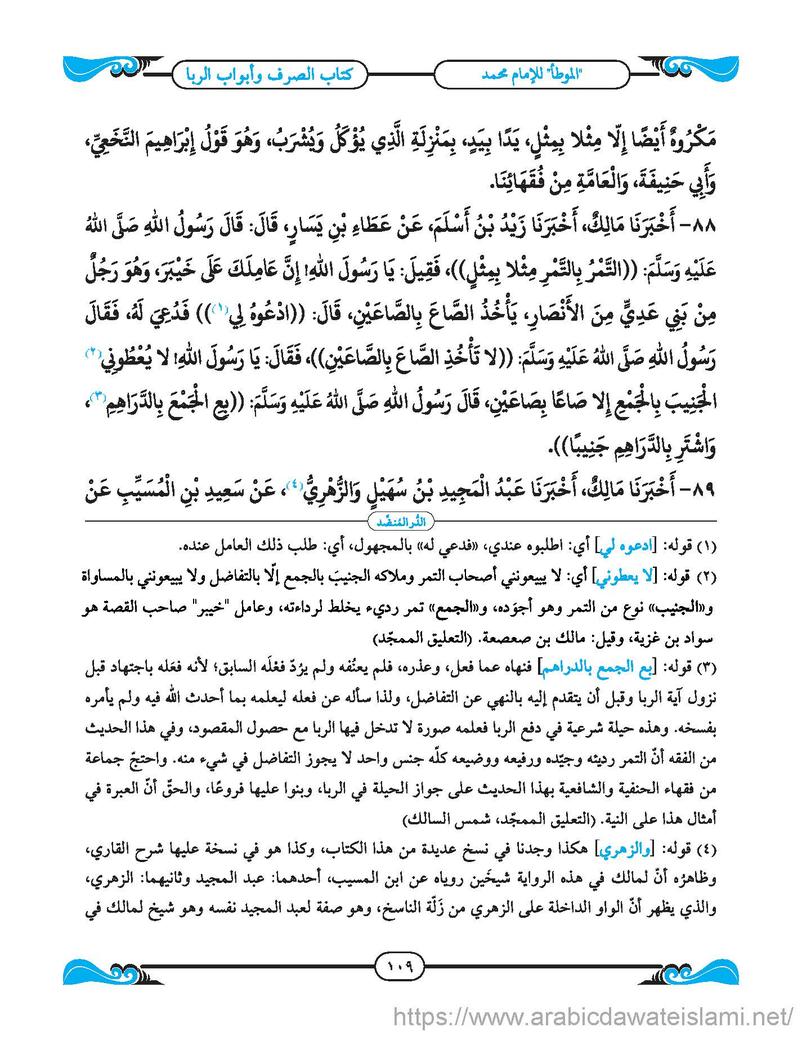 "الموطأ" للإمام محمد
كتاب الصرف وأبواب الربا
مَكْرُوهٌ أَيْضًا إِلّا مِثْلا بِمِثْلٍ، يَدًا بِيَدٍ، بِمَنْزِلَةِ الَّذِي يُؤْكَلُ وَيُشْرَبُ، وَهُوَ قَوْلُ إِبْرَاهِيمَ النَّخَعِيِّ،
وَأَبِي حَنِيفَةَ، وَالْعَامَّةِ مِنْ فُقَهَائِنَا.
٨٨- أَخْبَرَنَا مَالِكٌ، أَخْبَرَنَا زَيْدُ بْنُ أَسْلَمَ، عَنْ عَطَاءِ بْنِ يَسَارٍ، قَالَ: قَالَ رَسُولُ اللهِ صَلَّى اللهُ
عَلَيْهِ وَسَلَّمَ: ((التَّمْرُ بِالتَّمْرِ مِثْلا بِمِثْلٍ))، فَقِيلَ: يَا رَسُولَ اللهِ! إِنَّ عَامِلَكَ عَلَى خَيْبَرَ، وَهُوَ رَجُلٌ
مِنْ بَنِي عَدِيٍّ مِنَ الأَنْصَارِ، يَأْخُذُ الصَّاعَ بِالصَّاعَيْنِ، قَالَ: ((ادْعُوهُ لِي(١))) فَدُعِيَ لَهُ، فَقَالَ
رَسُولُ اللهِ صَلَّى اللهُ عَلَيْهِ وَسَلَّمَ: ((لا تَأْخُذِ الصَّاعَ بِالصَّاعَيْنِ))، فَقَالَ: يَا رَسُولَ اللهِ! لا يُعْطُونِي(٢)
الْجَنِيبَ بِالْجَمْعِ إِلا صَاعًا بِصَاعَيْنِ، قَالَ رَسُولُ اللهِ صَلَّى اللهُ عَلَيْهِ وَسَلَّمَ: ((بِعِ الْجَمْعَ بِالدَّرَاهِمِ(٣)،
وَاشْتَرِ بِالدَّرَاهِمِ جَنِيبًا)).
٨٩- أَخْبَرَنَا مَالِكٌ، أَخْبَرَنَا عَبْدُ الْمَجِيدِ بْنُ سُهَيْلٍ وَالزُّهْرِيُّ(٤)، عَنْ سَعِيدِ بْنِ الْمُسَيِّبِ عَنْ
الدُّر المُنضَّد
(١) قوله: [ادعوه لي] أي: اطلبوه عندي، «فدعي له» بالمجهول، أي: طلب ذلك العامل عنده.
(٢) قوله: [لا يعطوني] أي: لا يبيعونني أصحاب التمر وملاكه الجنيبَ بالجمع إلّا بالتفاضل ولا يبيعونني بالمساواة
و«الجنيب» نوع من التمر وهو أجوَده، و«الجمع» تمر رديء يخلط لرداءته، وعامل "خيبر" صاحب القصة هو
سواد بن غزية، وقيل: مالك بن صعصعة. (التعليق الممجّد)
(٣) قوله: [بع الجمع بالدراهم] فنهاه عما فعل، وعذره، فلم يعنّفه ولم يردّ فعْلَه السابق؛ لأنه فعَله باجتهاد قبل
نزول آية الربا وقبل أن يتقدم إليه بالنهي عن التفاضل، ولذا سأله عن فعله ليعلمه بما أحدث الله فيه ولم يأمره
بفسخه. وهذه حيلة شرعية في دفع الربا فعلمه صورة لا تدخل فيها الربا مع حصول المقصود، وفي هذا الحديث
من الفقه أنّ التمر رديئه وجيّده ورفيعه ووضيعه كلّه جنس واحد لا يجوز التفاضل في شيء منه. واحتجّ جماعة
من فقهاء الحنفية والشافعية بهذا الحديث على جواز الحيلة في الربا، وبنوا عليها فروعًا، والحقّ أنّ العبرة في
أمثال هذا على النية. (التعليق الممجّد، شمس السالك)
(٤) قوله: [والزهري] هكذا وجدنا في نسخ عديدة من هذا الكتاب، وكذا هو في نسخة عليها شرح القاري،
وظاهرُه أنّ لمالك في هذه الرواية شيخَين روياه عن ابن المسيب، أحدهما: عبد المجيد وثانيهما: الزهري،
والذي يظهر أنّ الواو الداخلة على الزهري من زَلّة الناسخ، وهو صفة لعبد المجيد نفسه وهو شيخ لمالك في
١٠٩
https://www.arabicdawateislami.net/